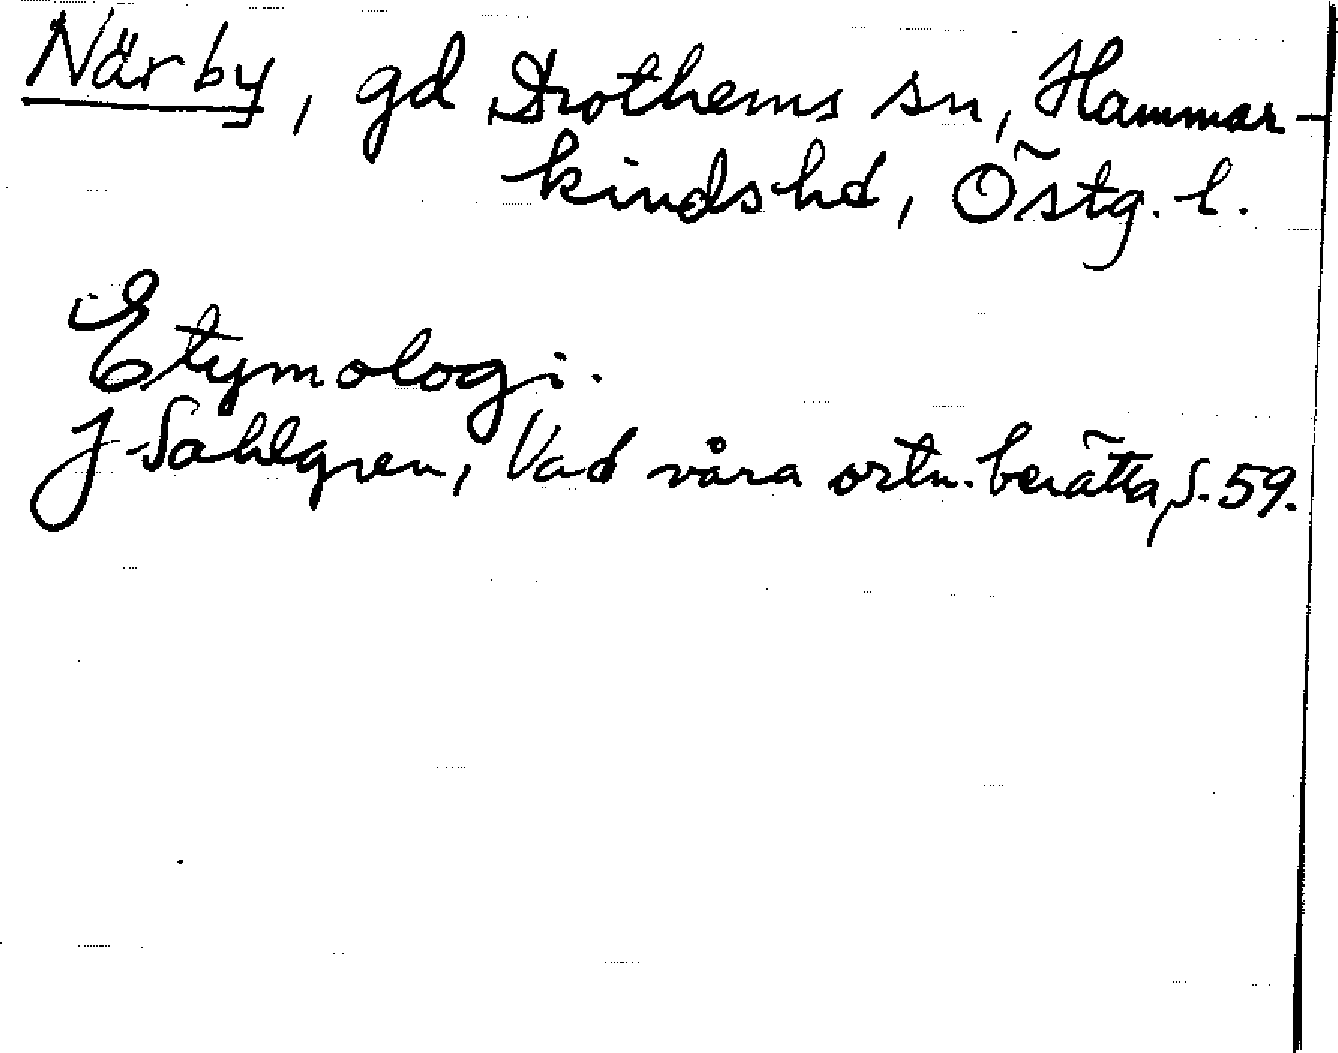 Närby, gd Drothems sn, Hammar-
kindshd, Östg. l.
Etymologi.
J Sahlgren, Vad våra ortn. berätta, s. 59.